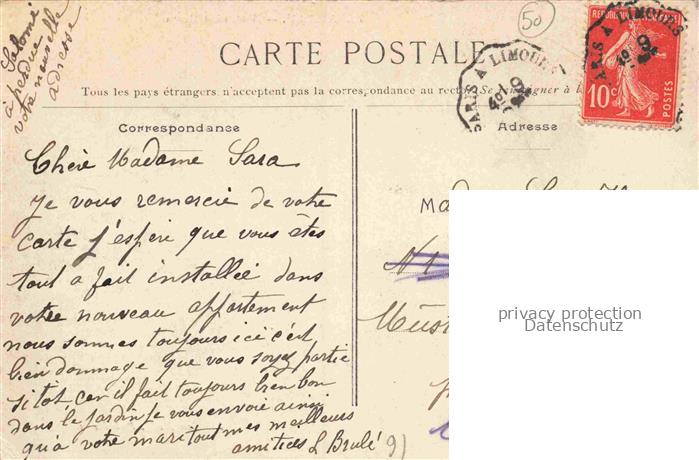 Salomé
a perdue
votre nouvelle
adresse
50
CARTE POSTALE
Tous les pays étrangers n'acceptent pas la correspondance au recto. Se renseigner à la
Correspondance
Adresse
PARIS A LIMOURS
PARIS A LIMOURS
10c
POSTES
Chère Madame Sara
Je vous remercie de votre
carte j'espère que vous êtes
tout a fait installée dans
votre nouveau appartement
nous sommes toujours ici c'est
bien dommage que vous soyez partie
si tot car il fait toujours bien bon
dans le jardin je vous envoie ainsi
qu'a votre mari tout mes meilleurs
amitiées L Brulé
9)
privacy protection
Datenschutz